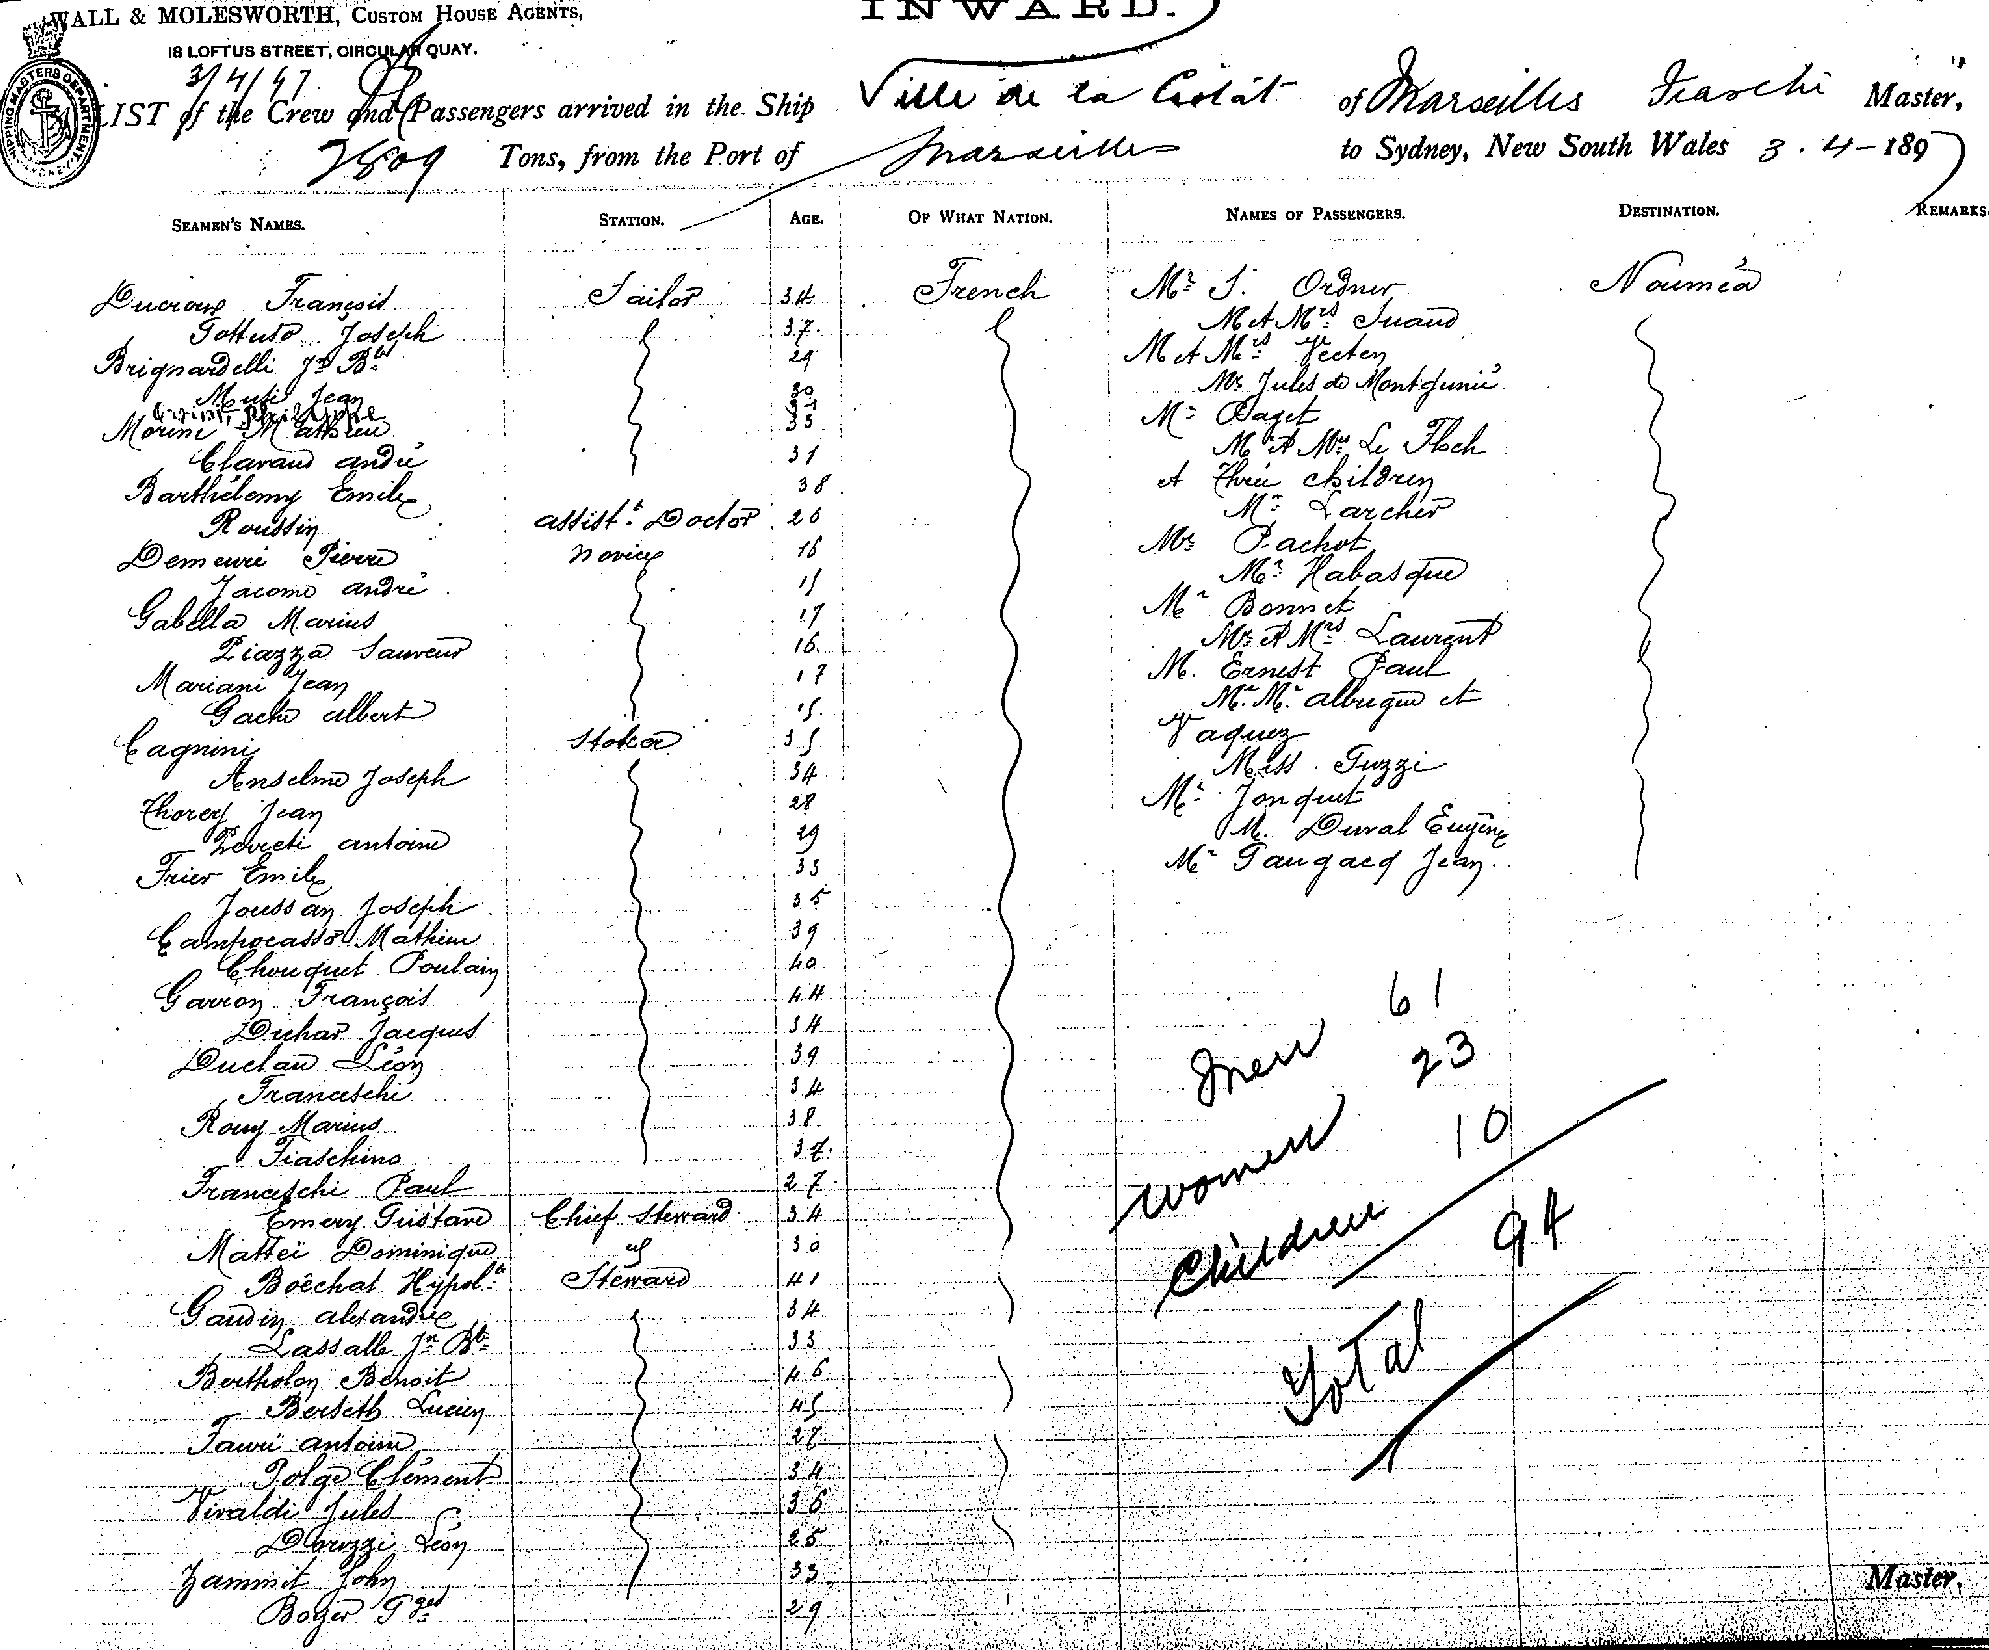 WALL & MOLESWORTH, CUSTOM HOUSE AGENTS,
INWARD.
18 LOFTUS STREET, CIRCULAR QUAY.
3/4/97
LIST of the Crew and Passengers arrived in the Ship Ville de la Ciotat of Marseilles Fiaschi Master,
Tons, from the Port of Marseilles to Sydney, New South Wales 3.4-1897
SEAMEN'S NAMES. STATION. AGE. OF WHAT NATION. NAMES OF PASSENGERS. DESTINATION. REMARKS
Ducroux François Sailor 34 French Mr. J. Ordner Nouméa
Joseph 37 M et Mrs.
Brignardelli Jn Bte 29 M et Mrs. Vecten
Muti Jean 30 Mr Jules de
Philippe
Morini Mathieu 33 Mr. Paget
Clavaud André 31 Mr et Mrs Le Floch
Barthélemy Emile 38 et Three children
Roussin Assistt. Doctor 26 Mr. Larcher
Demeure Pierre Novice 18 Mr Pachot
Jacomo André Mr. Habasque
Gabella Marius 17 Mr Bonnet
Piazza Sauveur 16 Mr et Mrs Laurent
Mariani Jean 17 M. Ernest Paul
Gache Albert Mr. Mr. Albuque et
Cagnini Stoker 35 Vaquez
Anselme Joseph 34 Miss Guzzi
Thorey Jean 28 Mr. Jonquet
Antoine 29 M. Duval Eugène
Frier Emile 33 Mr Jean
Joussan Joseph 35
Campocasso Mathieu 39
Chouquet Poulain 40
Garron François 44
Duhar Jacques 34
Duclau Léon 39
Franceschi 34
Roux Marius 38
Fiaschino 37
Franceschi Paul 27
Emery Gustave Chief Steward 34
Matteï Dominique 30
Boëchat Hypolte Steward 41
Gaudin Alexandre 34
Lassalle Jn Bte 33
Bertholon Benoit 46
Berseth Lucien 45
Antoine 27
Polge Clément 34
Vivaldi Jules 36
Léon 25
Zammit John 33
Boyer 29
Men 61
Women 23
Children 10
Total 94
Master.